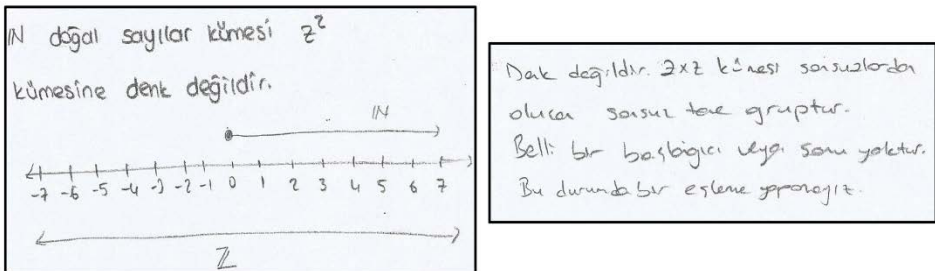 IN doğal sayılar kümesi z²
kümesine denk değildir.
IN
-7 -6 -5 -4 -3 -2 -1 0 1 2 3 4 5 6 7
Z
Denk değildir. ZxZ kümesi sonsuzlardan
oluşan sonsuz tane gruptur.
Belli bir başlangıcı veya sonu yoktur.
Bu durumda bir eşleme yapamayız.